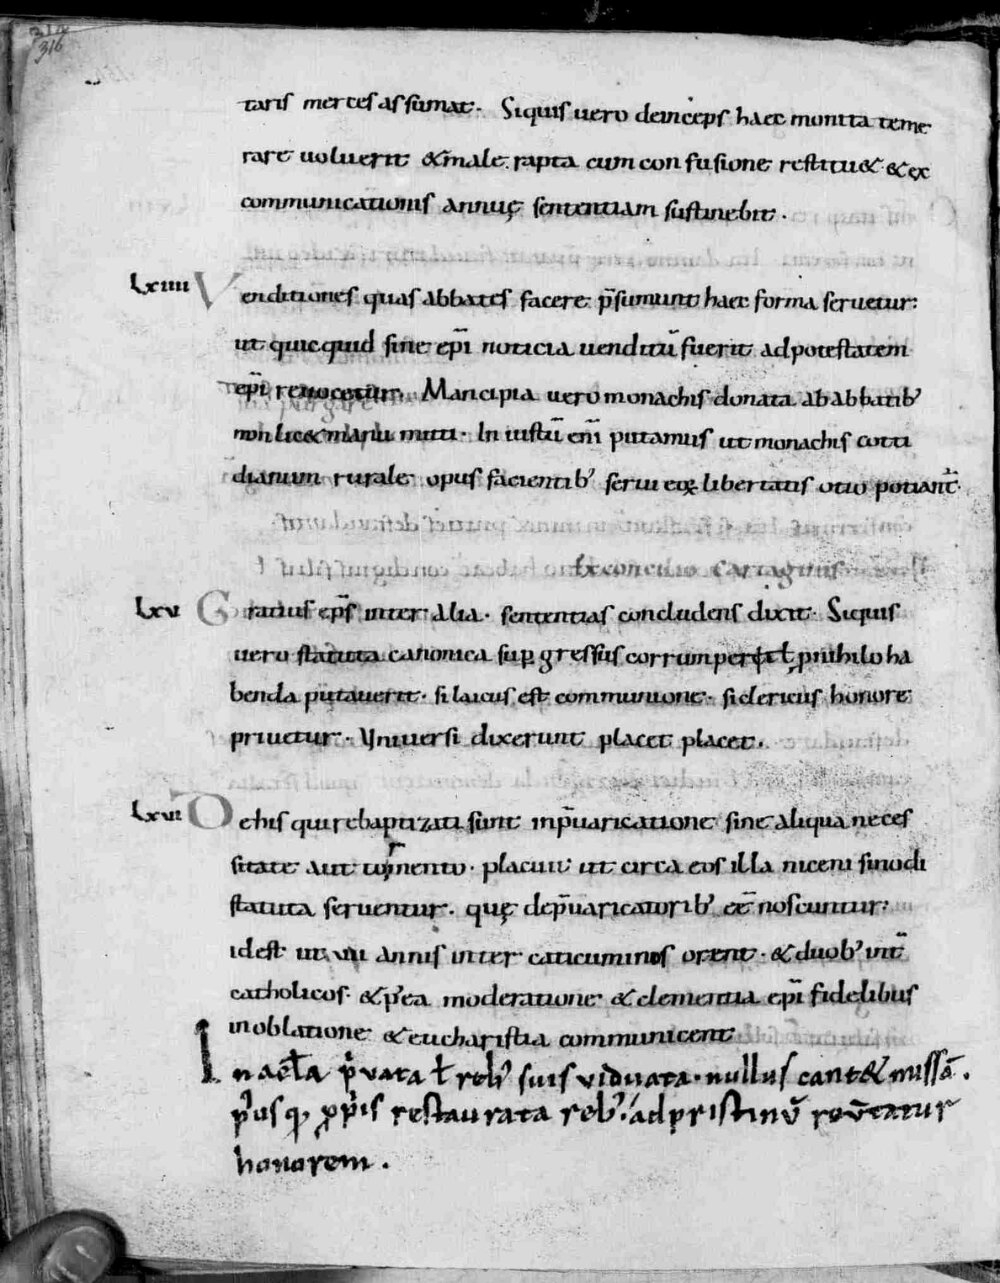 316
taris merces assumat. Siquis uero deinceps haec monita teme
rare uoluerit & male rapta cum confusione restitu& & ex
communicationis annuę sententiam sustinebit.
Lxiiii Venditiones quas abbates facere p̄sumunt haec forma seruetur:
ut quicquid sine ep̄i noticia uenditū fuerit ad potestatem
ep̄i reuocetur. Mancipia uero monachis donata ab abbatib'
non lic& manu mitti. Iniustū eni̅ putamus ut monachis cotti
dianum rurale opus facientib' serui eoꝝ libertatis otio potiant̄.
Ex concilio cartaginis
Lxv Gratus ep̄s inter alia. sententias concludens dixit. Siquis
uero statuta canonica sup̱gressus corruperit ł pnihilo ha
benda putauerit. si laicus est communione. si clericus honore
priuetur. Uniuersi dixerunt placet placet.
Lxvi De his qui rebaptizati sunt inp̄uaricatione sine aliqua neces
sitate aut tormento. placuit ut circa eos illa niceni sinodi
statuta seruentur. quę dep̄uaricatorib' ēē noscuntur:
idest ut vii annis inter caticuminos orent. & duob' int̄
catholicos. & p'ea moderatione & clementia ep̄i fidelibus
in oblatione & eucharistia communicent
In aecl̄a p̄uata ł reb' suis viduata. nullus cant& missā.
p'usqꝫ ꝓp̄iis restaurata reb'. ad pristinū reūtatur
honorem.